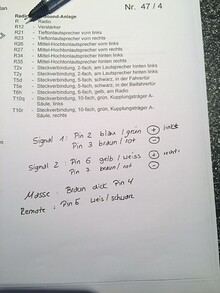 Nr. 47 / 4
R - Radio
R12 - Verstärker
R21 - Tieftonlautsprecher vorn links
R23 - Tieftonlautsprecher vorn rechts
R26 - Mittel-Hochtonlautsprecher vorn links
R27 - Mittel-Hochtonlautsprecher vorn rechts
R34 - Mittel-Hochtonlautsprecher hinten links
R35 - Mittel-Hochtonlautsprecher hinten rechts
T2r - Steckverbindung, 2-fach, am Lautsprecher hinten links
- Steckverbindung, 2-fach, am Lautsprecher hinten rechts
- Steckverbindung, 5-fach, schwarz, in der Fahrertür
- Steckverbindung, 5-fach, schwarz, in der Beifahrertür
- Steckverbindung, 8-fach, gelb, am Radio
T10q - Steckverbindung, 10-fach, grün, Kupplungsträger A-
Säule, links
- Steckverbindung, 10-fach, grün, Kupplungsträger A-
Säule, rechts
Signal 1: Pin 2 blau / grün + links
Pin 3 braun / rot -
Signal 2: Pin 6 gelb / weiss + rechts
Pin 7 braun / rot -
Masse: Braun dick Pin 4
Remote: Pin 5 weis / schwarz